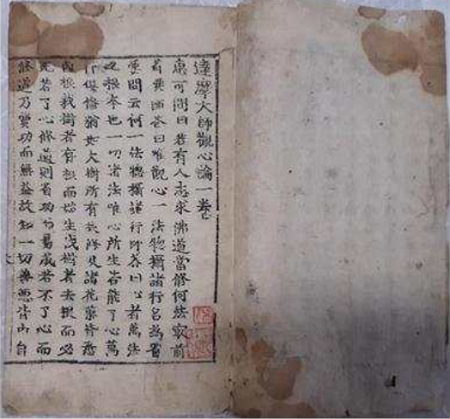 達摩大師觀心論一卷
惠可問曰若有人志求佛道當修何法最
要師答曰唯觀心一法揔攝諸行名為省
要問云何一法揔攝諸行師答曰心者萬法
之根本也一切諸法唯心所生若能了心萬
行俱備猶如大樹所有枝條及諸花菓皆悉
根栽樹者存根而始生伐樹者去根而必
死若了心修道則省功而易成若不了心而
修道乃費功而無益故知一切善惡皆由自